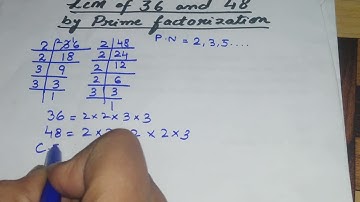 Lcm of 36 and 48
by Prime factorization
P.N = 2,3,5....
2 | 36
2 | 18
3 | 9
3 | 3
1
2 | 48
2 | 24
2 | 12
2 | 6
3 | 3
1
36 = 2×2×3×3
48 = 2×2×2×2×3
C.F